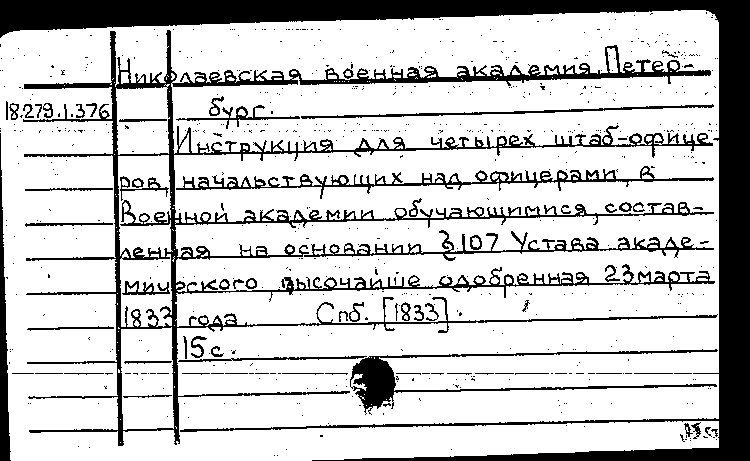 Николаевская военная академия, Петер-
18.279.1.376 бург.
Инструкция для четырех штаб-офице-
ров, начальствующих над офицерами, в
Военной академии обучающимися, состав-
ленная на основании § 107 Устава акаде-
мического, высочайше одобренная 23 марта
1833 года. Спб., [1833].
15 с.